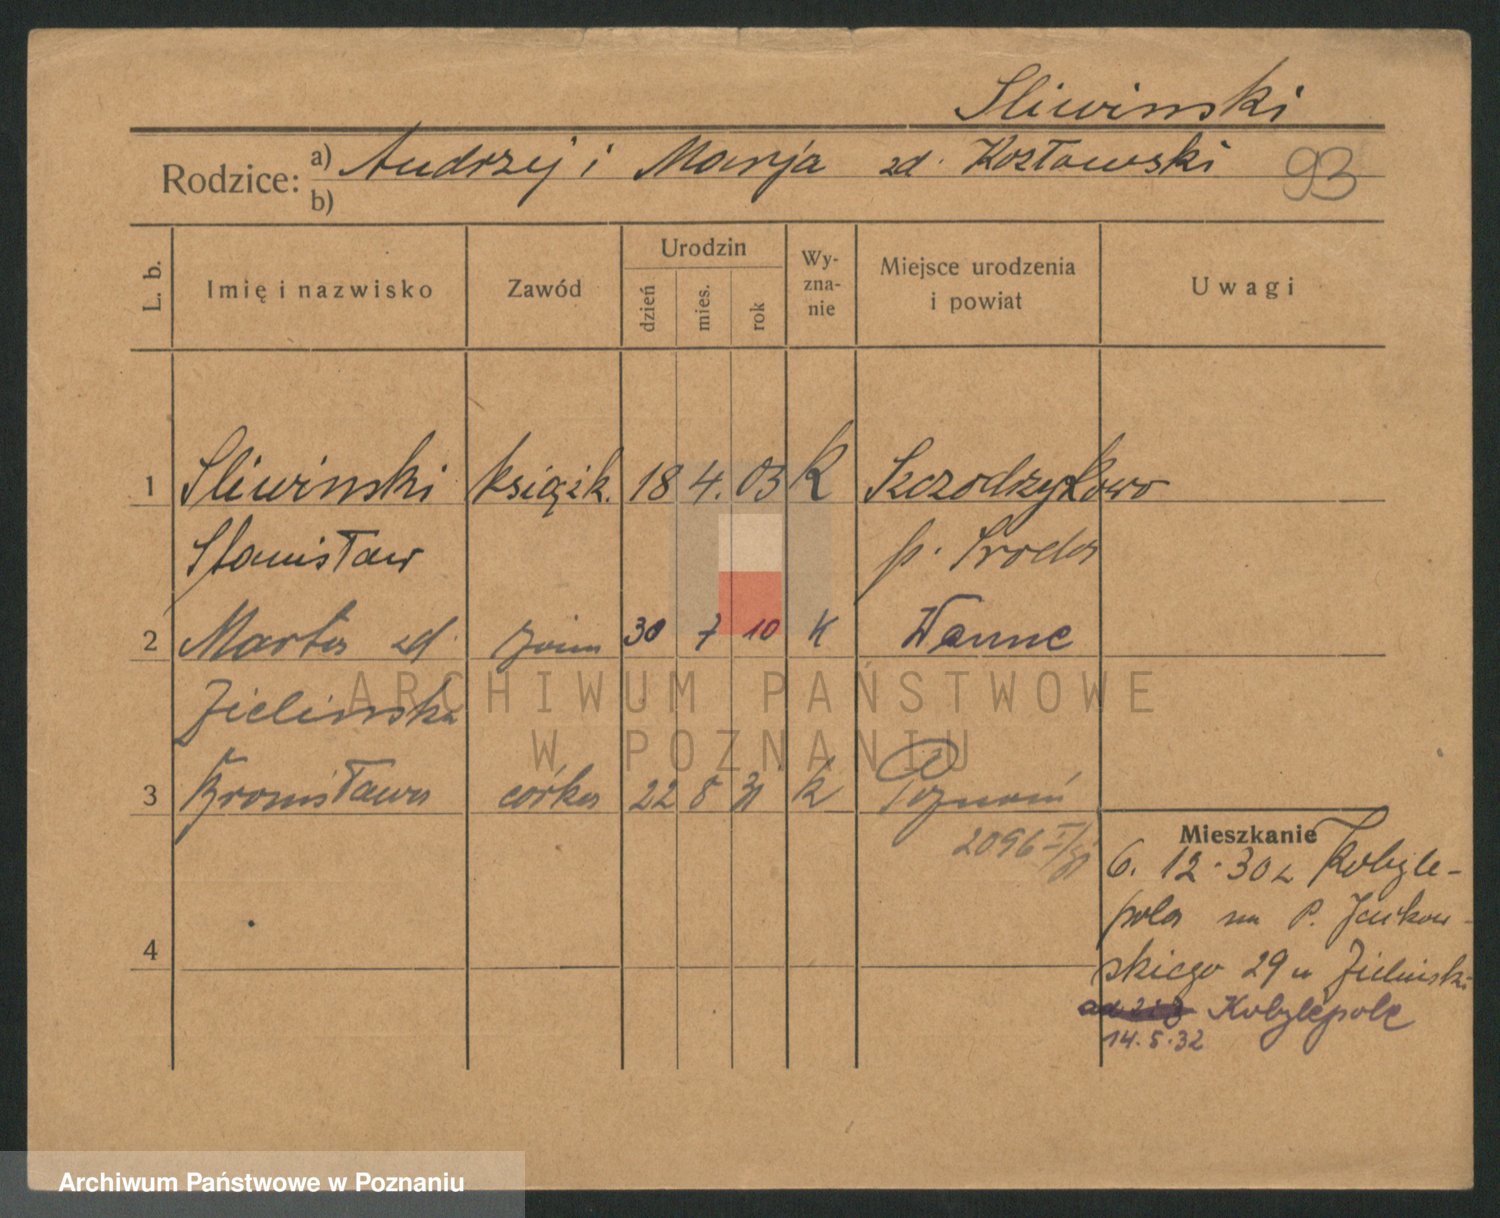 Sliwinski
Rodzice: a) Andrzej i Marja zd. Kozłowski 93
b)
L. b. Imię i nazwisko Zawód Urodzin dzień mies. rok Wyznanie Miejsce urodzenia i powiat Uwagi
1 Sliwinski książk. 18 4. 03 K Szczodrzykowo
Stanisław p. Sroda
2 Marta zd. 30 7 10 K Wanne
Zielinska
3 Bronisława córka 22 8 31 k Poznań
2096 I/31
Mieszkanie
6. 12. 30 z Kobyle-
pola na P. Jackow-
skiego 29 u Zielinski
Kobylepole
14. 5. 32
4
ARCHIWUM PAŃSTWOWE
W POZNANIU
Archiwum Państwowe w Poznaniu